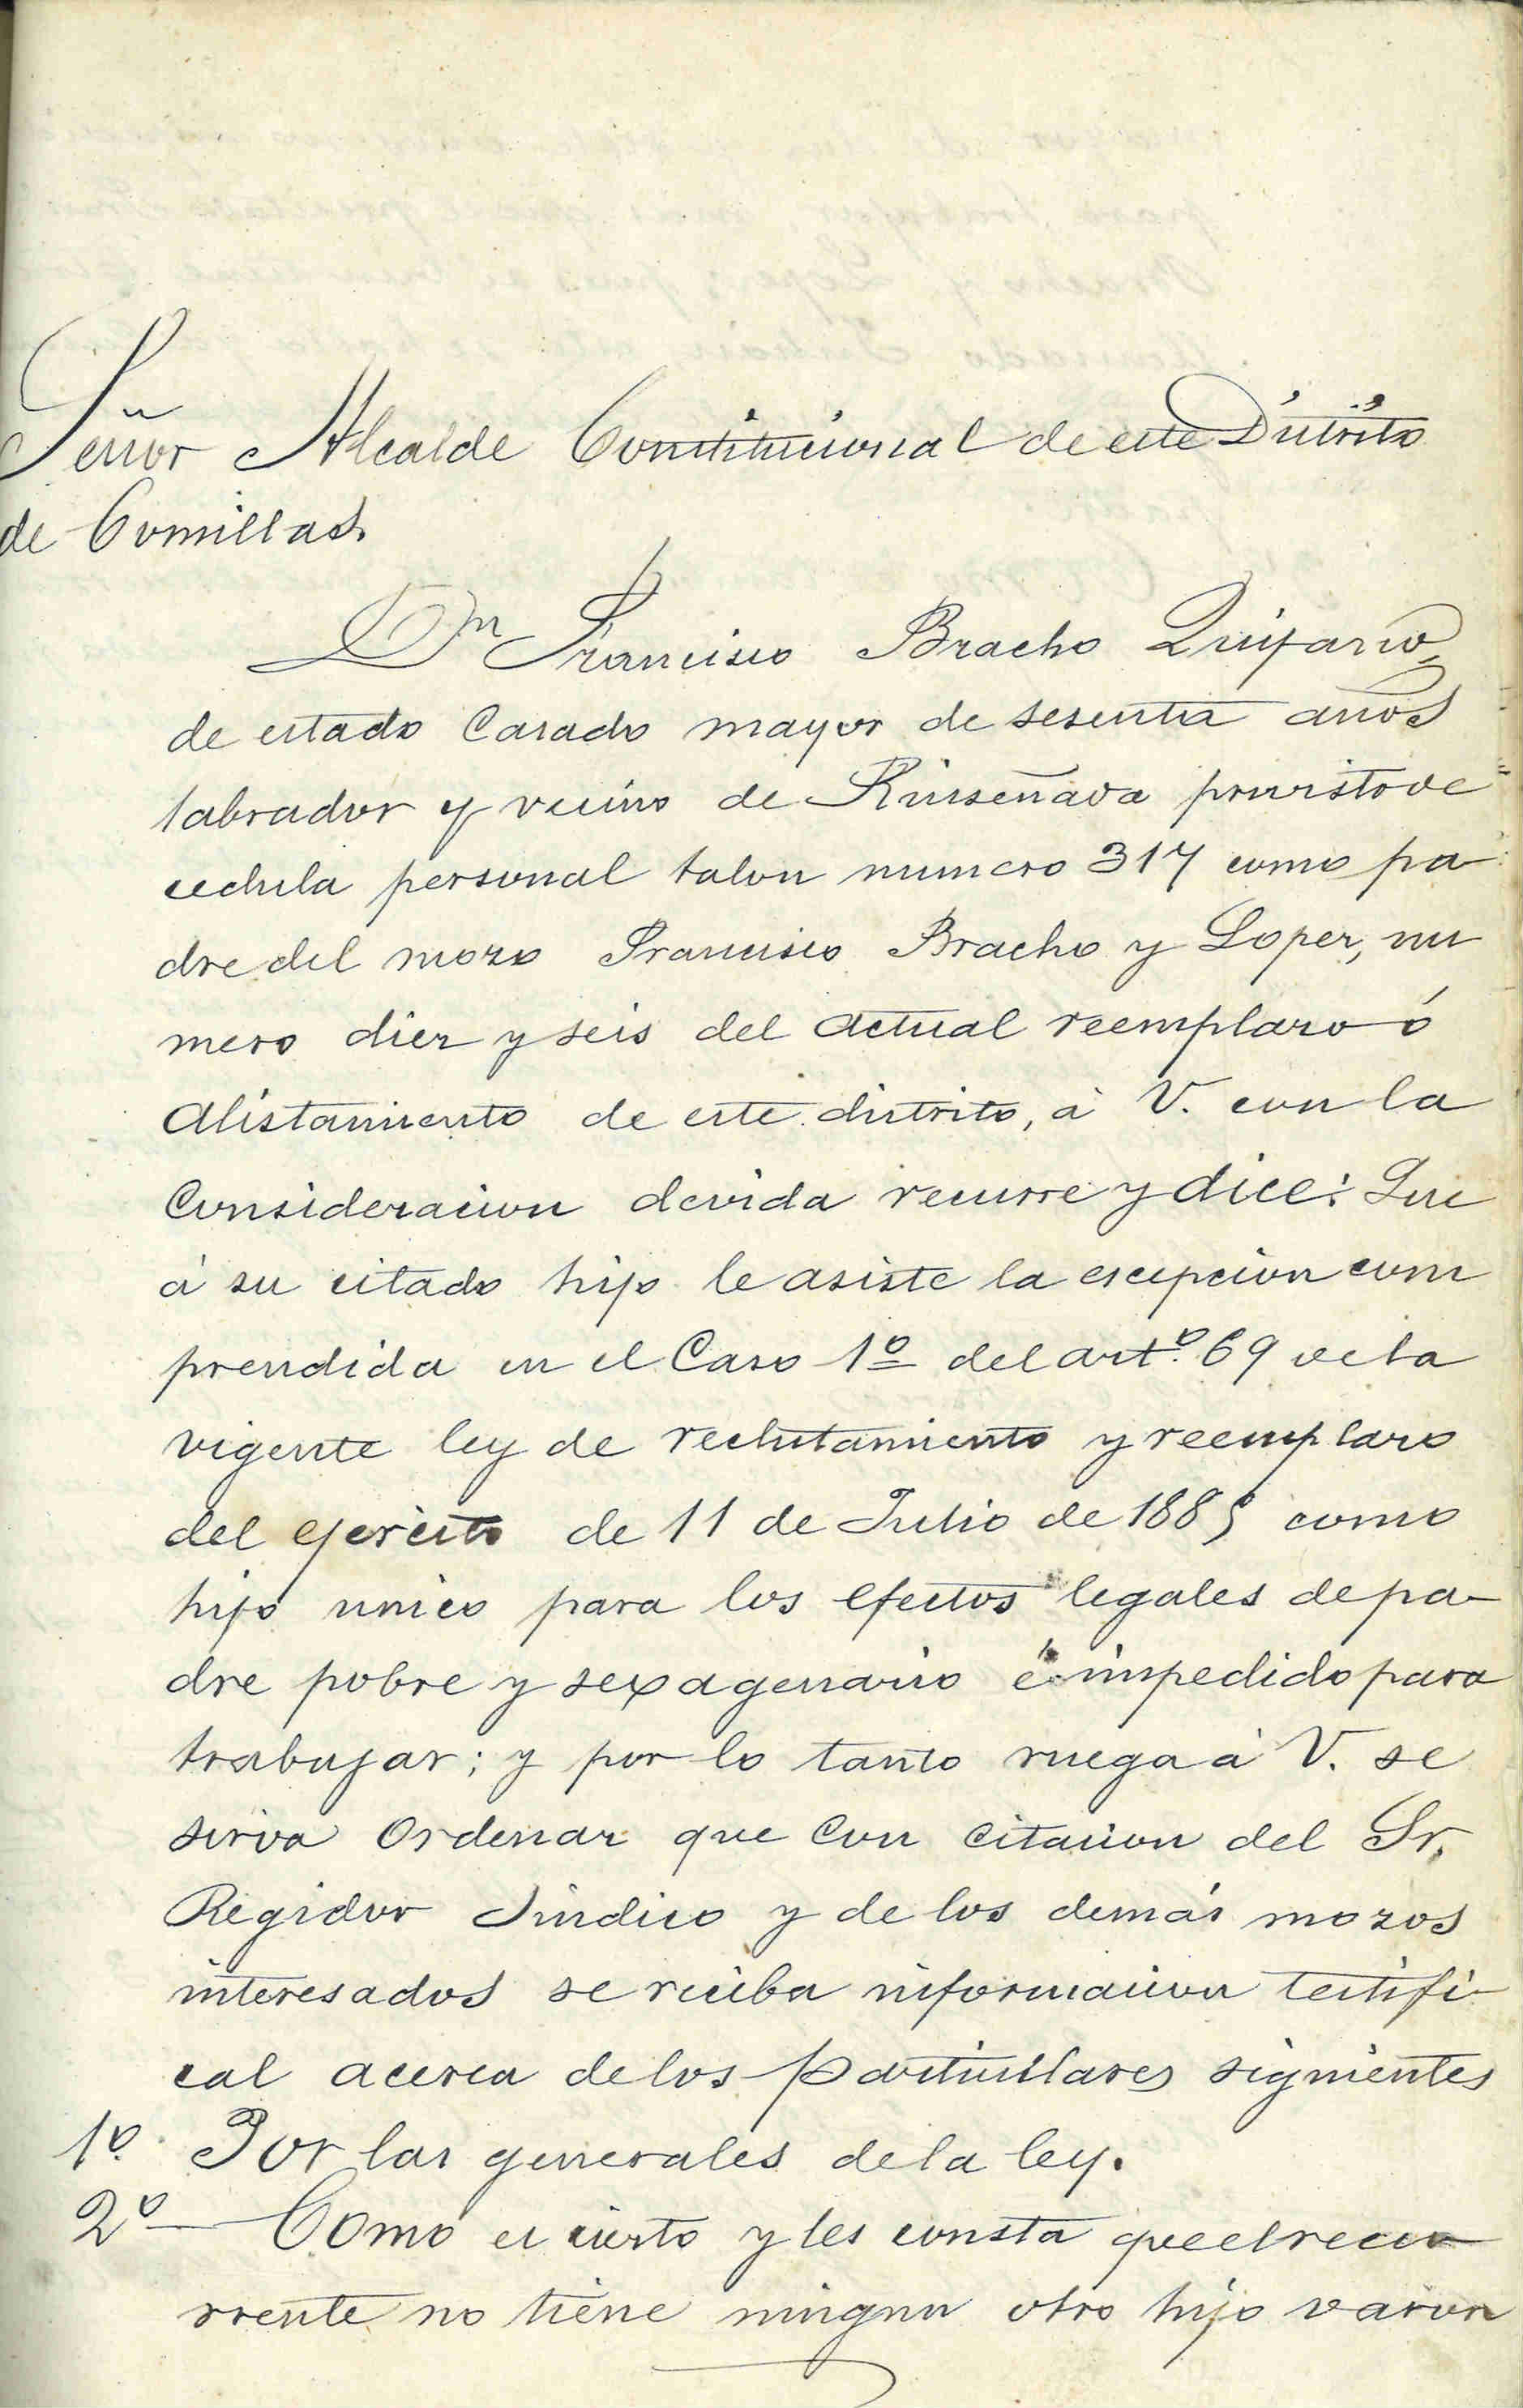 Señor Alcalde Constitucional de este Distrito
de Comillas.
Dn Francisco Bracho Quijano,
de estado Casado mayor de sesenta años
labrador y vecino de Ruiseñada provisto de
cedula personal talon numero 317 como pa
dre del mozo Francisco Bracho y Lopez, nu
mero diez y seis del actual reemplazo ó
Alistamiento de este distrito, á V. con la
Consideracion devida recurre y dice: Que
á su citado hijo le asiste la escepcion com
prendida en el Caso 1º del artº. 69 de la
vigente ley de reclutamiento y reemplazo
del ejercito de 11 de Julio de 1885 como
hijo unico para los efectos legales de pa-
dre pobre y sexagenario é impedido para
trabajar; y por lo tanto ruega á V. se
sirva Ordenar que Con Citacion del Sr.
Regidor Sindico y de los demás mozos
interesados se reciba informacion testifi-
cal acerca de los particullares siguientes
1º. Por las generales de la ley.
2º Como es cierto y les consta que el recu
rrente no tiene ningun otro hijo varon